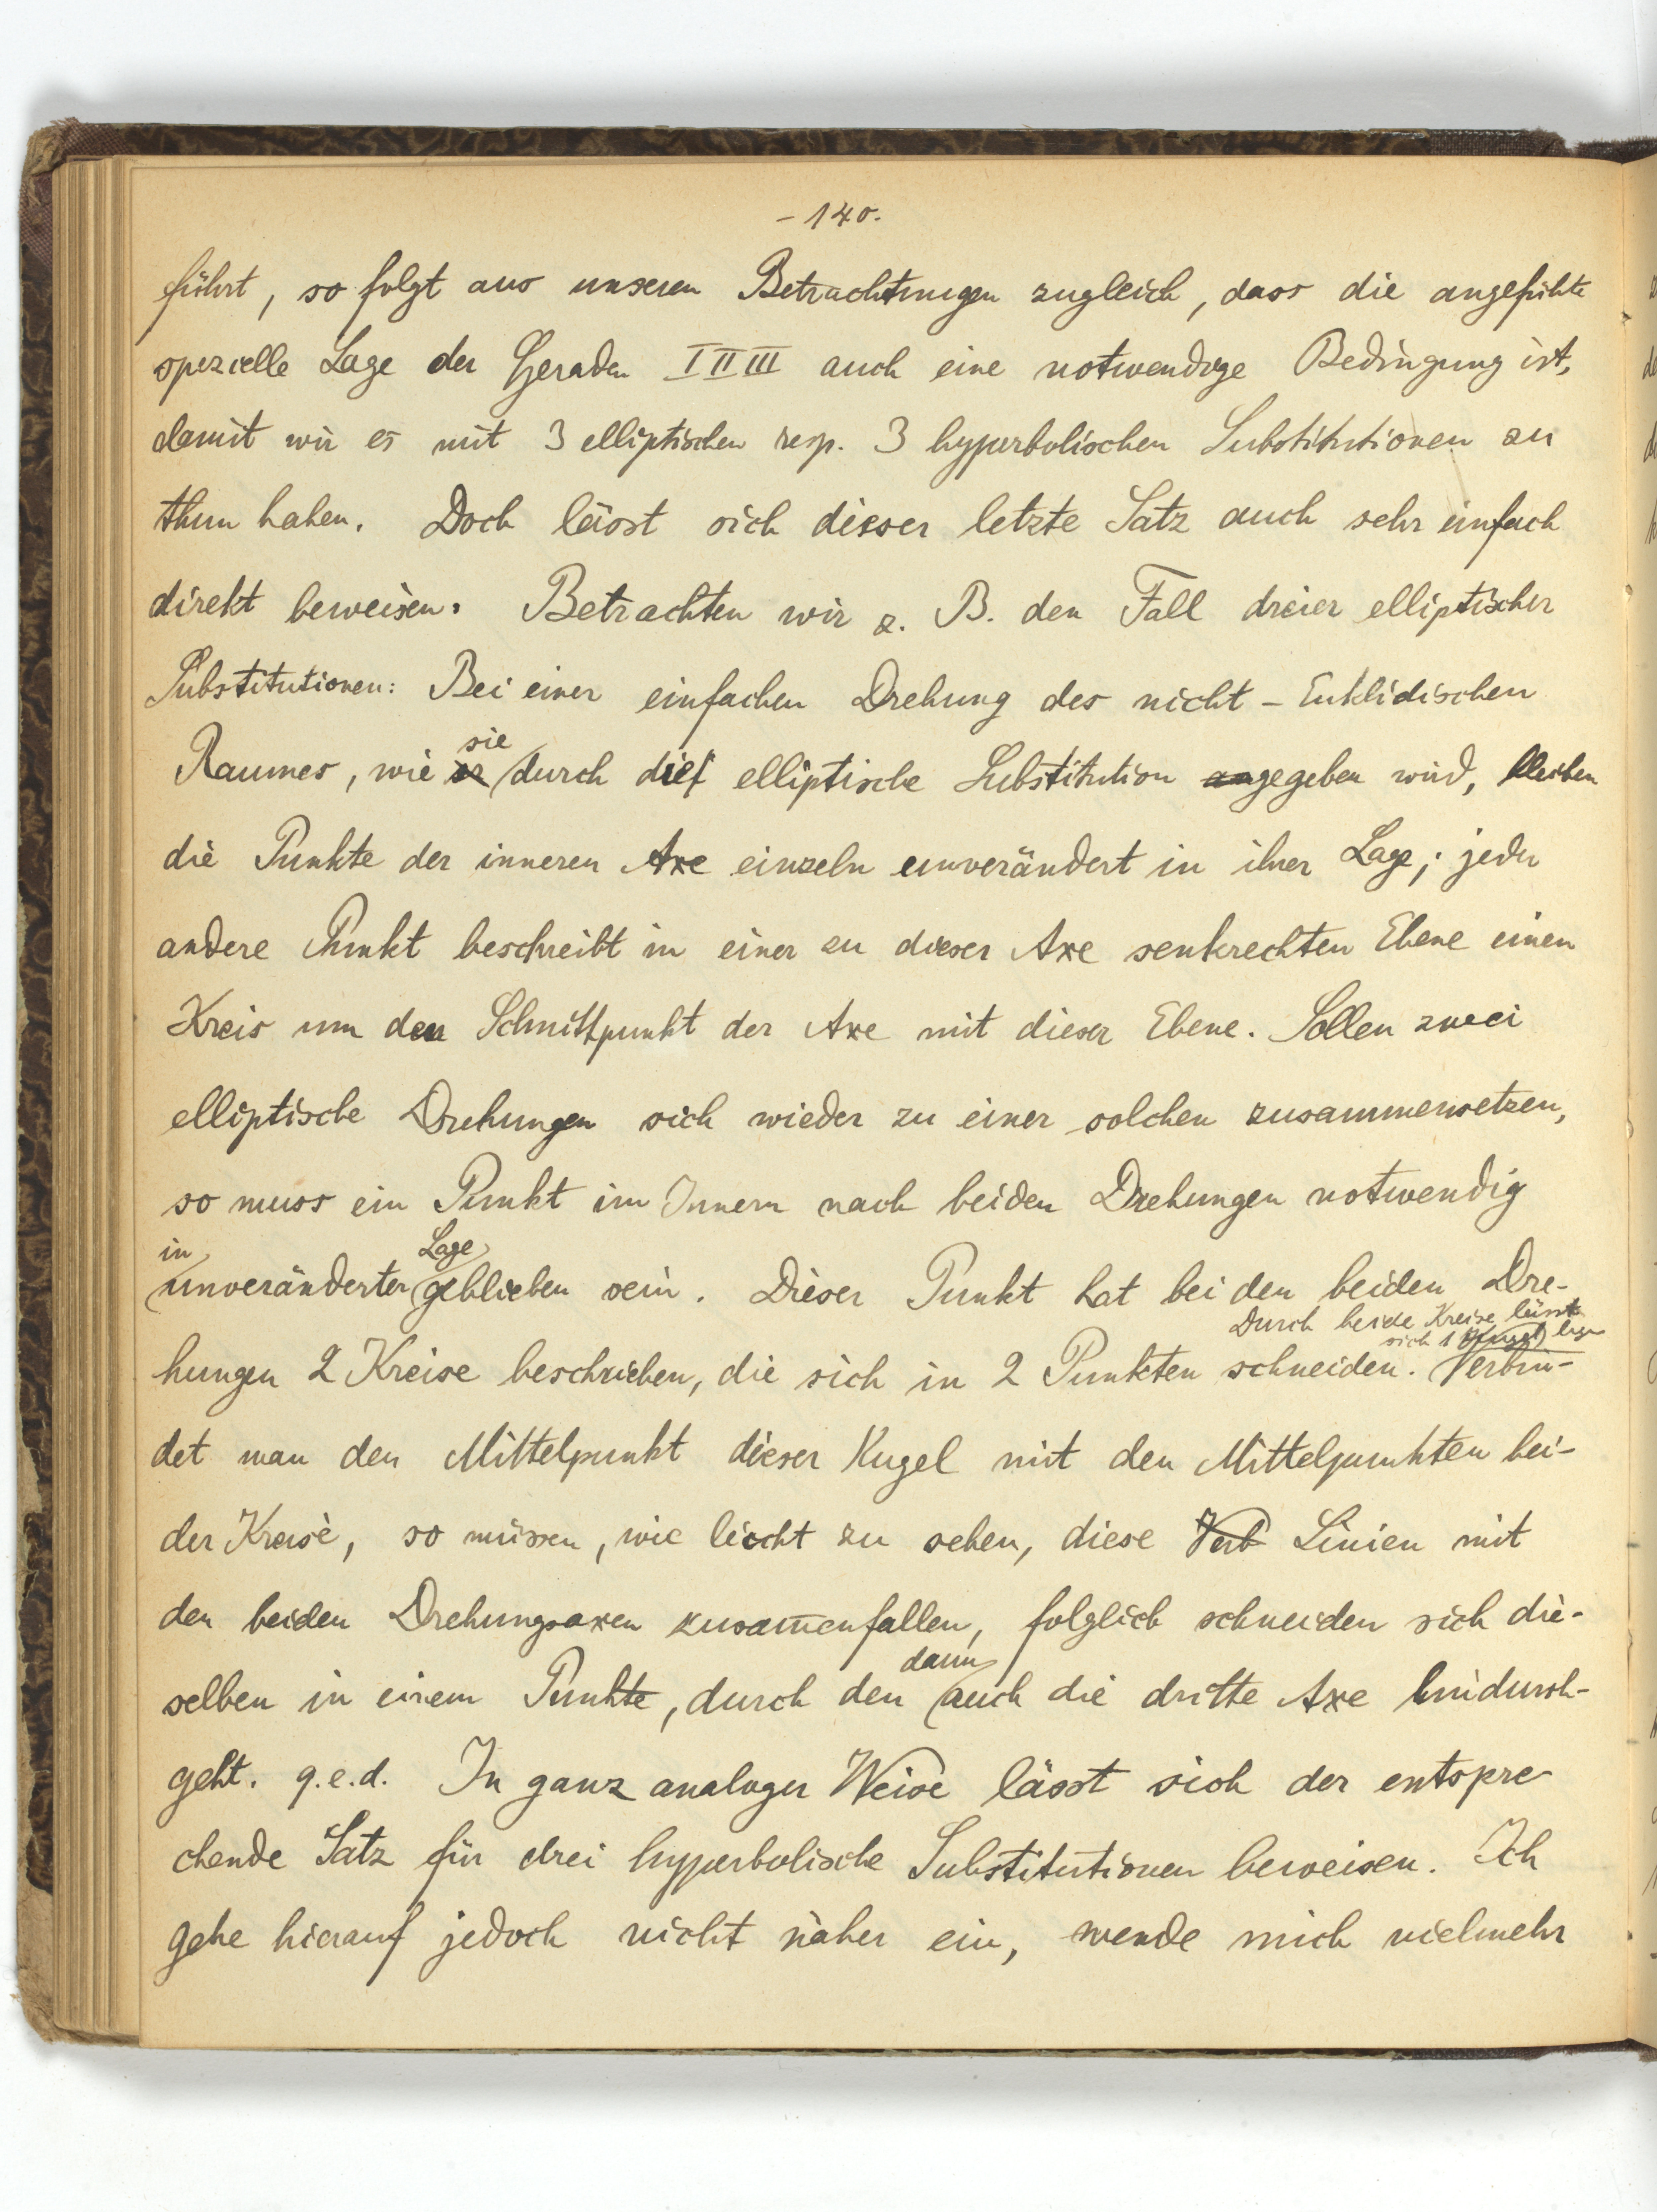 - 140.
führt, so folgt aus unseren Betrachtungen zugleich, dass die angeführte
spezielle Lage der Geraden I II III auch eine notwendige Bedingung ist,
damit wir es mit 3 elliptischen resp. 3 hyperbolischen Substitutionen zu
thun haben. Doch lässt sich dieser letzte Satz auch sehr einfach
direkt beweisen. Betrachten wir z. B. den Fall dreier elliptischer
Substitutionen: Bei einer einfachen Drehung des nicht-Euklidischen
sie
Raumes, wie er durch die elliptische Substitution angegeben wird, bleiben
die Punkte der inneren Axe einzeln unverändert in ihrer Lage; jeder
andere Punkt beschreibt in einer zu dieser Axe senkrechten Ebene einen
Kreis um den Schnittpunkt der Axe mit dieser Ebene. Sollen zwei
elliptische Drehungen sich wieder zu einer solchen zusammensetzen,
so muss ein Punkt im Innern nach beiden Drehungen notwendig
in Lage
unveränderter geblieben sein. Dieser Punkt hat bei den beiden Dre-
Durch beide Kreise lässt
sich 1 Kugel legen
hungen 2 Kreise beschrieben, die sich in 2 Punkten schneiden. Verbin-
det man den Mittelpunkt dieser Kugel mit den Mittelpunkten bei-
der Kreise, so müssen, wie leicht zu sehen, diese Verb Linien mit
den beiden Drehungsaxen zusam̅enfallen, folglich schneiden sich die-
dann
selben in einem Punkte, durch den auch die dritte Axe hindurch-
geht. q.e.d. In ganz analoger Weise lässt sich der entspre-
chende Satz für drei hyperbolische Substitutionen beweisen. Ich
gehe hierauf jedoch nicht näher ein, wende mich vielmehr